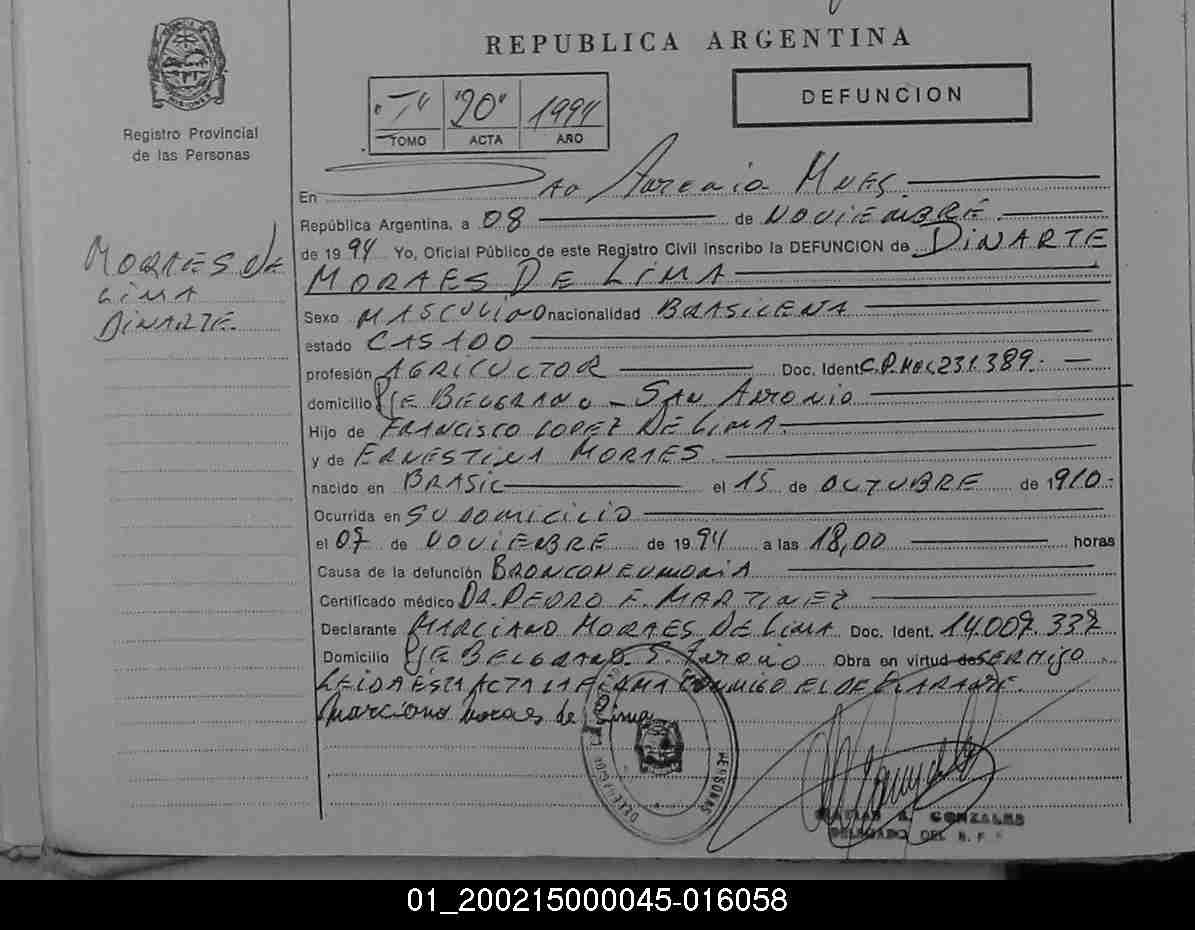 REPUBLICA ARGENTINA
MISIONES
Registro Provincial
de las Personas
"I" "20" 1994
TOMO ACTA AÑO
DEFUNCION
En Antonio Mnes.
República Argentina, a 08 de NOVIEMBRE.
de 1994 Yo, Oficial Público de este Registro Civil inscribo la DEFUNCION de DINARTE
MORAES DE LIMA
MORAES de
LIMA
DINARTE.
Sexo MASCULINO nacionalidad BRASILENA
estado CASADO
profesión AGRICULTOR Doc. Ident. C.P.Mnes 231.389.
domicilio Pje BELGRANO - SAN ANTONIO
Hijo de FRANCISCO LOPEZ DE LIMA.
y de ERNESTINA MORAES.
nacido en BRASIL el 15 de OCTUBRE de 1910.
Ocurrida en SU DOMICILIO
el 07 de NOVIEMBRE de 1994 a las 18,00 horas
Causa de la defunción BRONCONEUMONIA
Certificado médico DR. PEDRO F. MARTINEZ
Declarante MARCIANO MORAES DE LIMA Doc. Ident. 14.007.337
Domicilio Pje BELGRANO. S. Antonio Obra en virtud de SER HIJO
LEIDA ESTA ACTA LA FIRMA CONMIGO EL DECLARANTE.
Marciano moraes de Lima
PERSONAS
GONZALES
DELEGADO DEL R. P
01_200215000045-016058